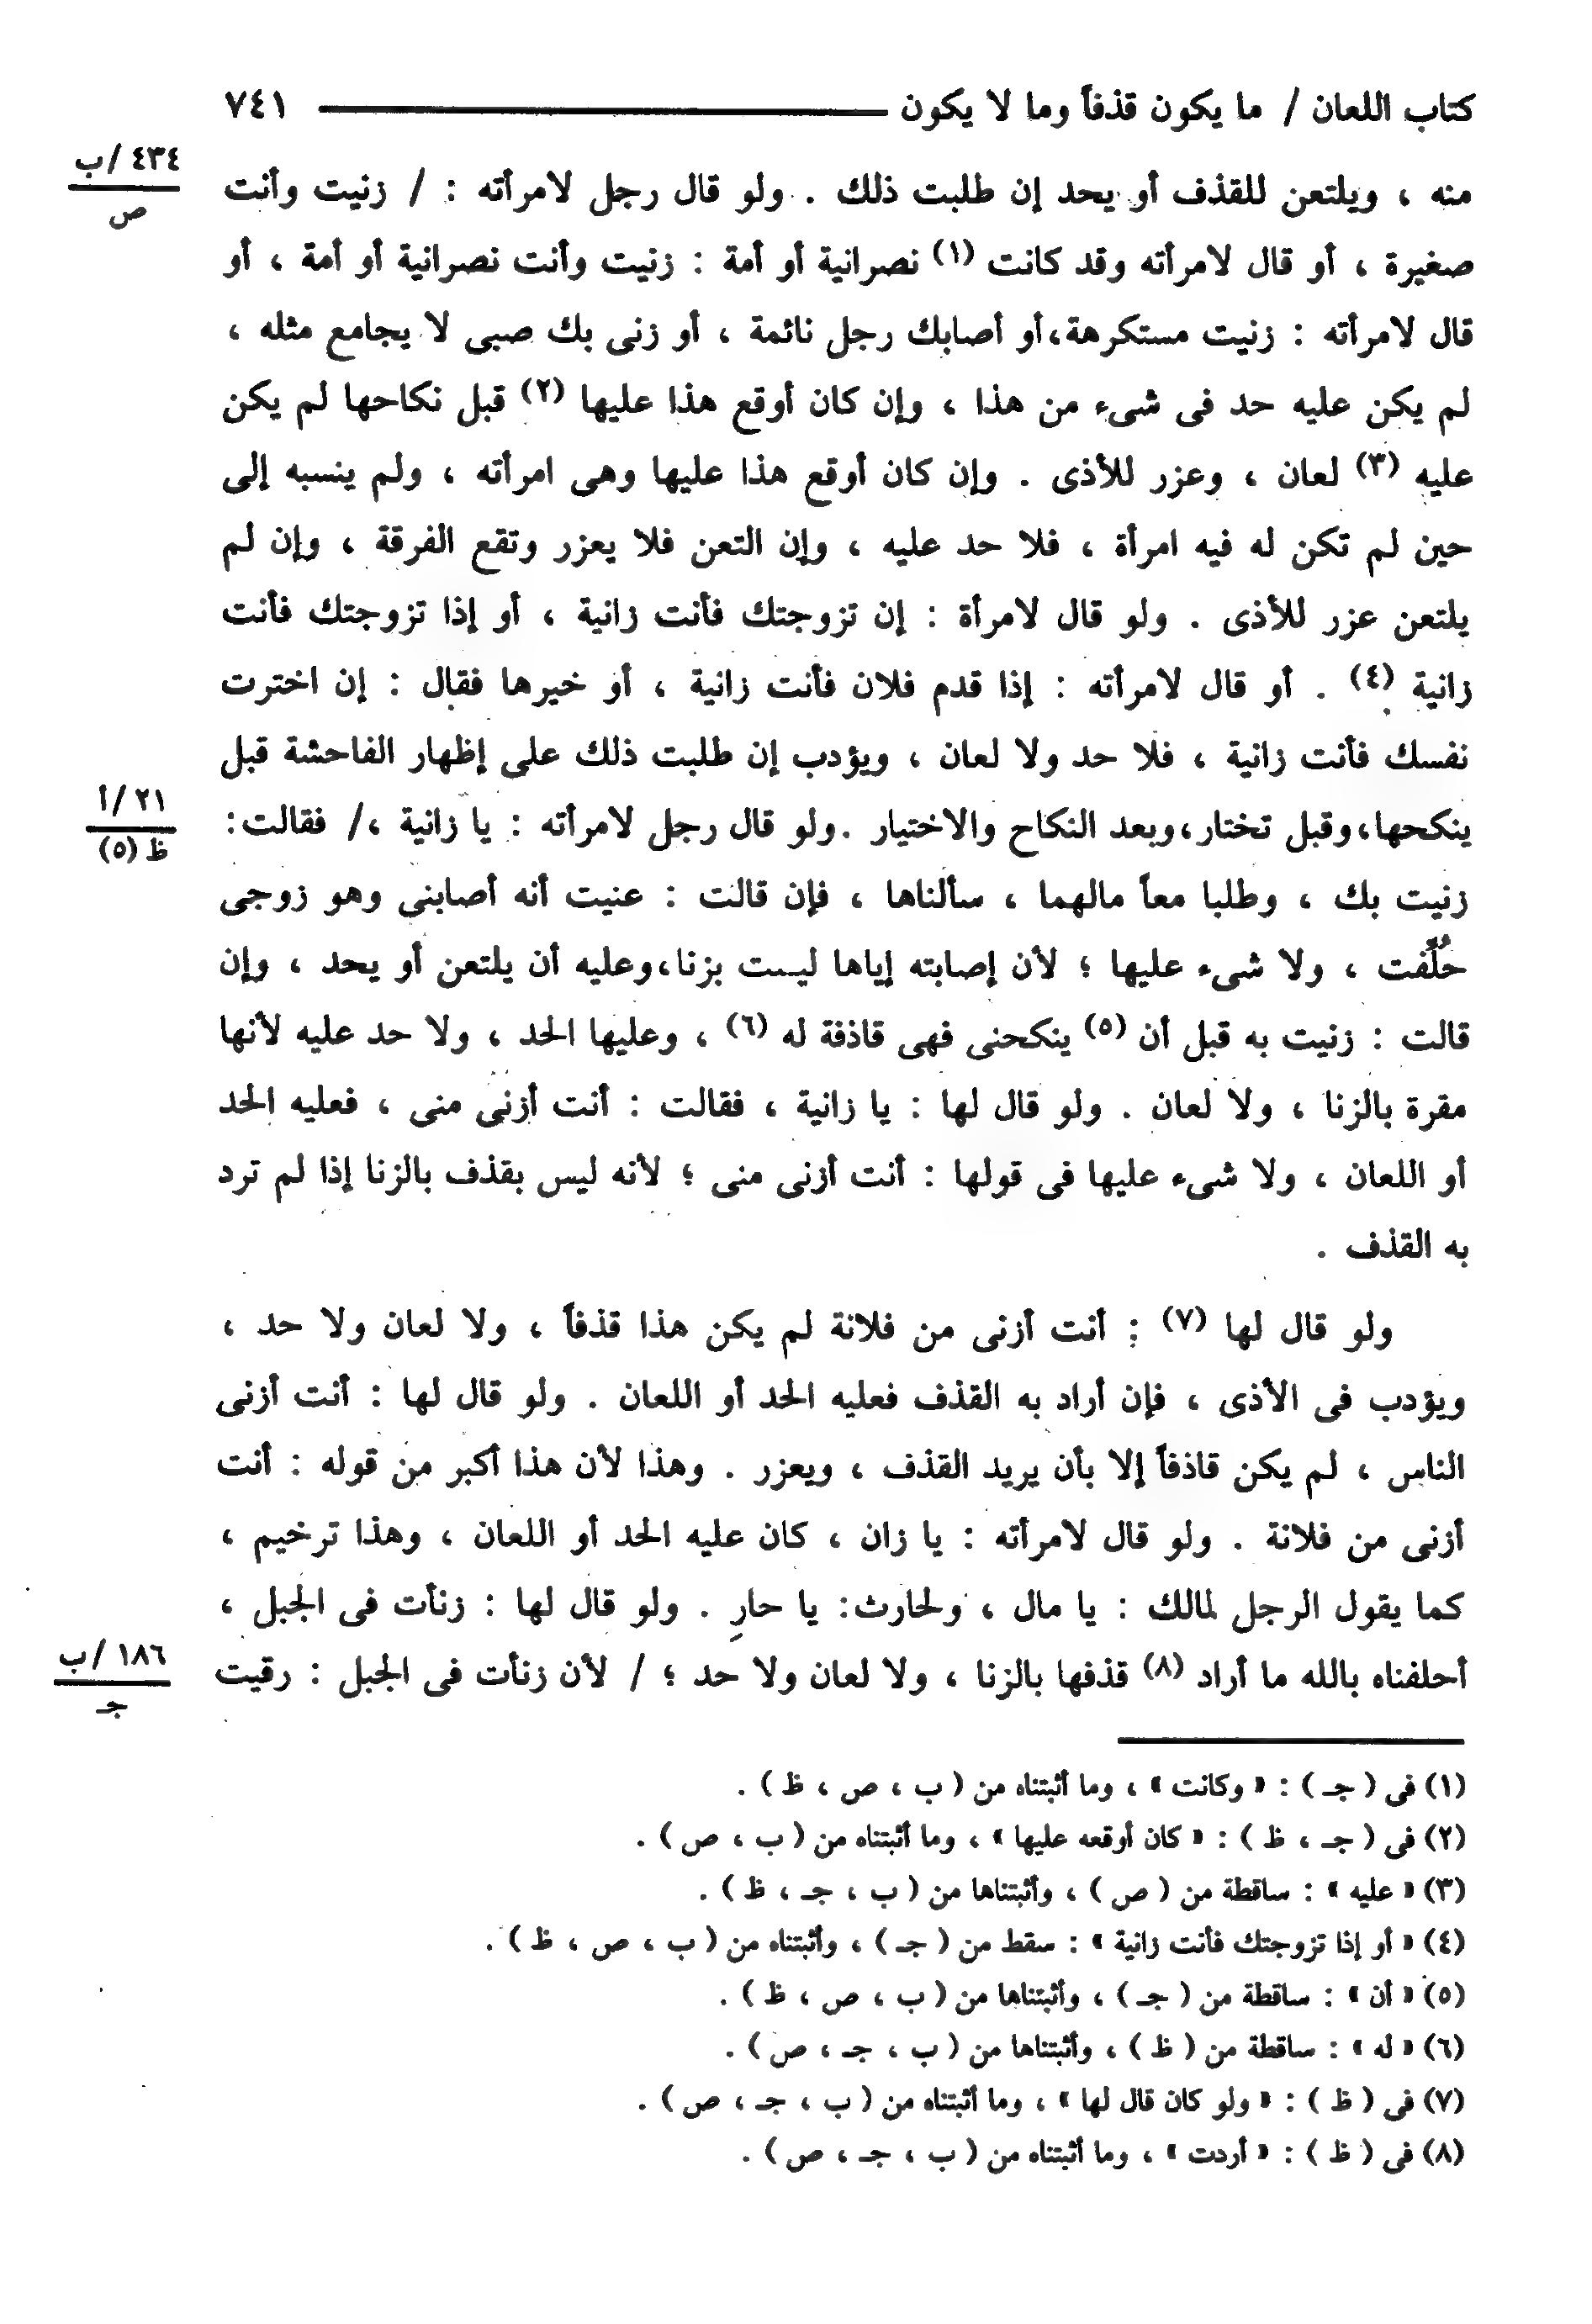 كتاب اللعان / ما يكون قذفاً وما لا يكون ٧٤١
٤٣٤ /ب
ص
منه ، ويلتعن للقذف أو يحد إن طلبت ذلك . ولو قال رجل لامرأته : / زنيت وأنت
صغيرة ، أو قال لامرأته وقد كانت (١) نصرانية أو أمة : زنيت وأنت نصرانية أو أمة ، أو
قال لامرأته : زنيت مستكرهة،أو أصابك رجل نائمة ، أو زنى بك صبى لا يجامع مثله ،
لم يكن عليه حد فى شىء من هذا ، وإن كان أوقع هذا عليها (٢) قبل نكاحها لم يكن
عليه (٣) لعان ، وعزر للأذى . وإن كان أوقع هذا عليها وهى امرأته ، ولم ينسبه إلى
حين لم تكن له فيه امرأة ، فلا حد عليه ، وإن التعن فلا يعزر وتقع الفرقة ، وإن لم
يلتعن عزر للأذى . ولو قال لامرأة : إن تزوجتك فأنت زانية ، أو إذا تزوجتك فأنت
زانية (٤) . أو قال لامرأته : إذا قدم فلان فأنت زانية ، أو خيرها فقال : إن اخترت
نفسك فأنت زانية ، فلا حد ولا لعان ، ويؤدب إن طلبت ذلك على إظهار الفاحشة قبل
٢١ /أ
ظ (٥)
ينكحها،وقبل تختار،وبعد النكاح والاختيار .ولو قال رجل لامرأته : يا زانية ،/ فقالت:
زنيت بك ، وطلبا معاً مالهما ، سألناها ، فإن قالت : عنيت أنه أصابنى وهو زوجى
حُلِّفت ، ولا شىء عليها ؛ لأن إصابته إياها ليست بزنا،وعليه أن يلتعن أو يحد ، وإن
قالت : زنيت به قبل أن (٥) ينكحنى فهى قاذفة له (٦) ، وعليها الحد ، ولا حد عليه لأنها
مقرة بالزنا ، ولا لعان . ولو قال لها : يا زانية ، فقالت : أنت أزنى منى ، فعليه الحد
أو اللعان ، ولا شىء عليها فى قولها : أنت أزنى منى ؛ لأنه ليس بقذف بالزنا إذا لم ترد
به القذف .
ولو قال لها (٧) : أنت أزنى من فلانة لم يكن هذا قذفاً ، ولا لعان ولا حد ،
ويؤدب فى الأذى ، فإن أراد به القذف فعليه الحد أو اللعان . ولو قال لها : أنت أزنى
الناس ، لم يكن قاذفاً إلا بأن يريد القذف ، ويعزر . وهذا لأن هذا أكبر من قوله : أنت
أزنى من فلانة . ولو قال لامرأته : يا زان ، كان عليه الحد أو اللعان ، وهذا ترخيم ،
كما يقول الرجل لمالك : يا مال ، ولحارث: يا حارِ . ولو قال لها : زنأت فى الجبل ،
١٨٦ /ب
جـ
أحلفناه بالله ما أراد (٨) قذفها بالزنا ، ولا لعان ولا حد ؛ / لأن زنأت فى الجبل : رقيت
(١) فى ( جـ ) : « وكانت » ، وما أثبتناه من ( ب ، ص ، ظ ) .
(٢) فى ( جـ ، ظ ) : « كان أوقعه عليها » ، وما أثبتناه من ( ب ، ص ) .
(٣) « عليه » : ساقطة من ( ص ) ، وأثبتناها من ( ب ، جـ ، ظ ) .
(٤) « أو إذا تزوجتك فأنت زانية » : سقط من ( جـ ) ، وأثبتناه من ( ب ، ص ، ظ ) .
(٥) « أن » : ساقطة من ( جـ ) ، وأثبتناها من ( ب ، ص ، ظ ) .
(٦) « له » : ساقطة من ( ظ ) ، وأثبتناها من ( ب ، جـ ، ص ) .
(٧) فى ( ظ ) : « ولو كان قال لها » ، وما أثبتناه من ( ب ، جـ ، ص ) .
(٨) فى ( ظ ) : « أردت » ، وما أثبتناه من ( ب ، جـ ، ص ) .